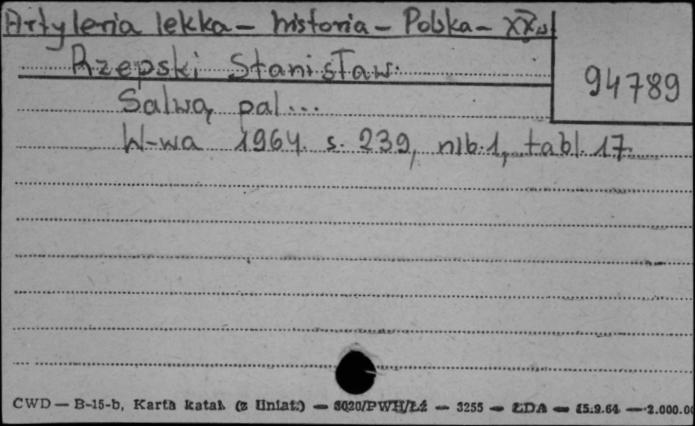 Artyleria lekka - historia - Polska - XX w
94789
Rzepski Stanisław.
Salwą pal...
W-wa 1964. s. 239, nlb. 1, tabl. 17.
CWD — B-15-b, Karta katal. (z Uniat.) — 3020/PWH/Łź — 3255 — ŁDA — 15.9.64 — 2.000.0